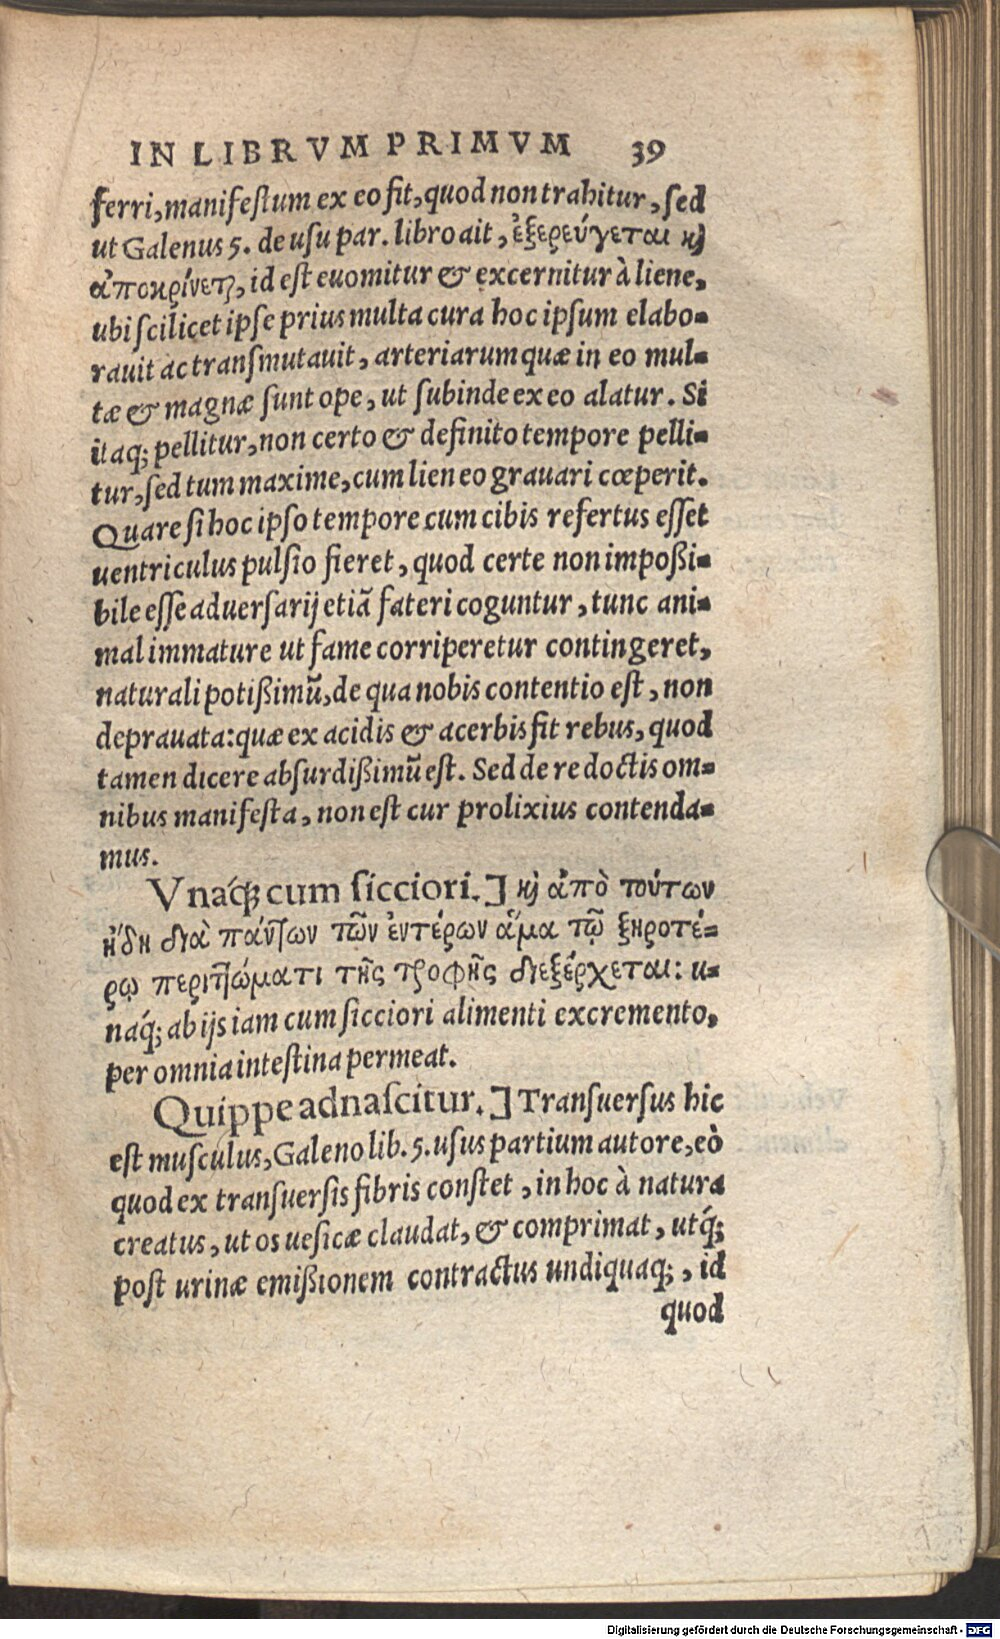 IN LIBRVM PRIMVM 39
ferri, manifestum ex eo fit, quod non trahitur, sed
ut Galenus 5. de usu par. libro ait, ἐξερεύγεται ϗ
ἀποκρίνεται, id est euomitur & excernitur à liene,
ubi scilicet ipse prius multa cura hoc ipsum elabo-
rauit ac transmutauit, arteriarum quæ in eo mul-
tæ & magnæ sunt ope, ut subinde ex eo alatur. Si
itaq; pellitur, non certo & definito tempore pelli-
tur, sed tum maxime, cum lien eo grauari cœperit.
Quare si hoc ipso tempore cum cibis refertus esset
uentriculus pulsio fieret, quod certe non impoßi-
bile esse aduersarij etiã fateri coguntur, tunc ani-
mal immature ut fame corriperetur contingeret,
naturali potißimũ, de qua nobis contentio est, non
deprauata: quæ ex acidis & acerbis fit rebus, quod
tamen dicere absurdißimũ est. Sed de re doctis om-
nibus manifesta, non est cur prolixius contenda-
mus.
Vnaq́; cum sicciori.] ϗ ἀπὸ τούτων
ἤδη διὰ πάντων τῶν ἐντέρων ἅμα τῷ ξηροτέ-
ρῳ περιττώματι τῆς τροφῆς διεξέρχεται: u-
naq́; ab ijs iam cum sicciori alimenti excremento,
per omnia intestina permeat.
Quippe adnascitur.] Transuersus hic
est musculus, Galeno lib. 5. usus partium autore, eò
quod ex transuersis fibris constet, in hoc à natura
creatus, ut os uesicæ claudat, & comprimat, utq́;
post urinæ emißionem contractus undiquaq;, id
quod
Digitalisierung gefördert durch die Deutsche Forschungsgemeinschaft - DFG